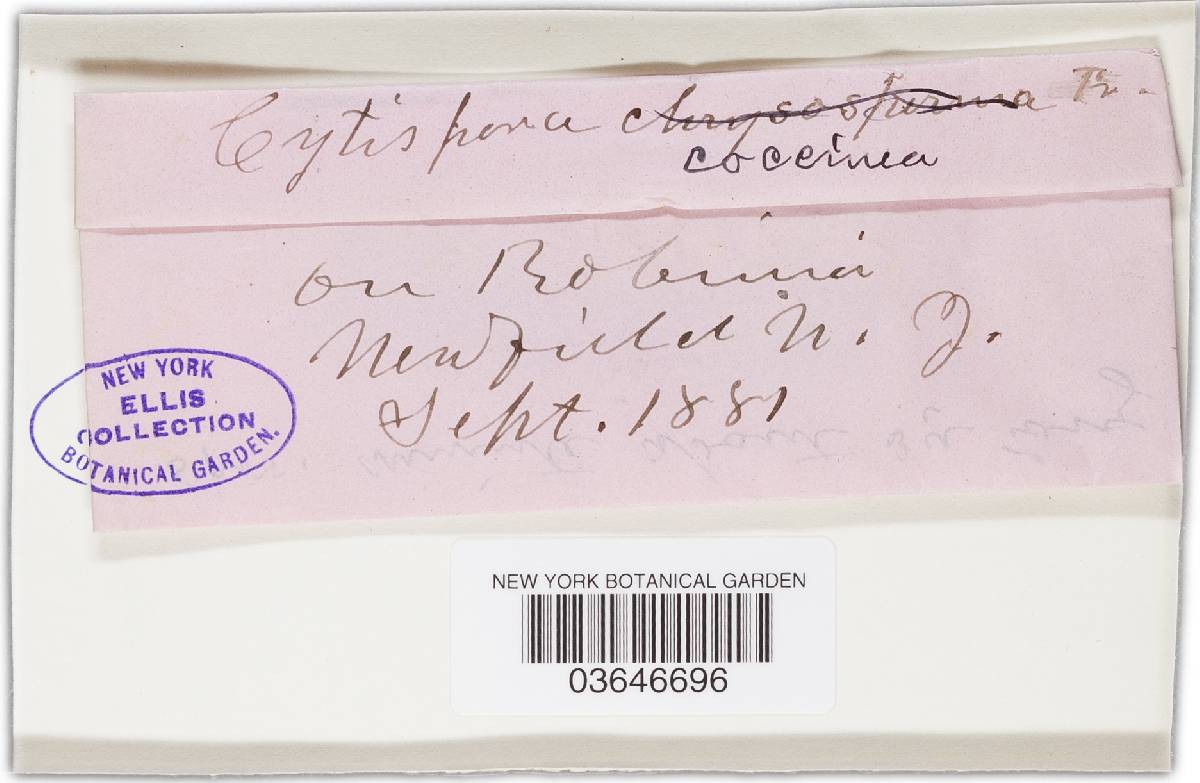 Cytispora chrysosperma Fr.
coccinea
on Robinia
Newfield N. J.
Sept. 1881
NEW YORK
ELLIS
COLLECTION
BOTANICAL GARDEN.
NEW YORK BOTANICAL GARDEN
03646696